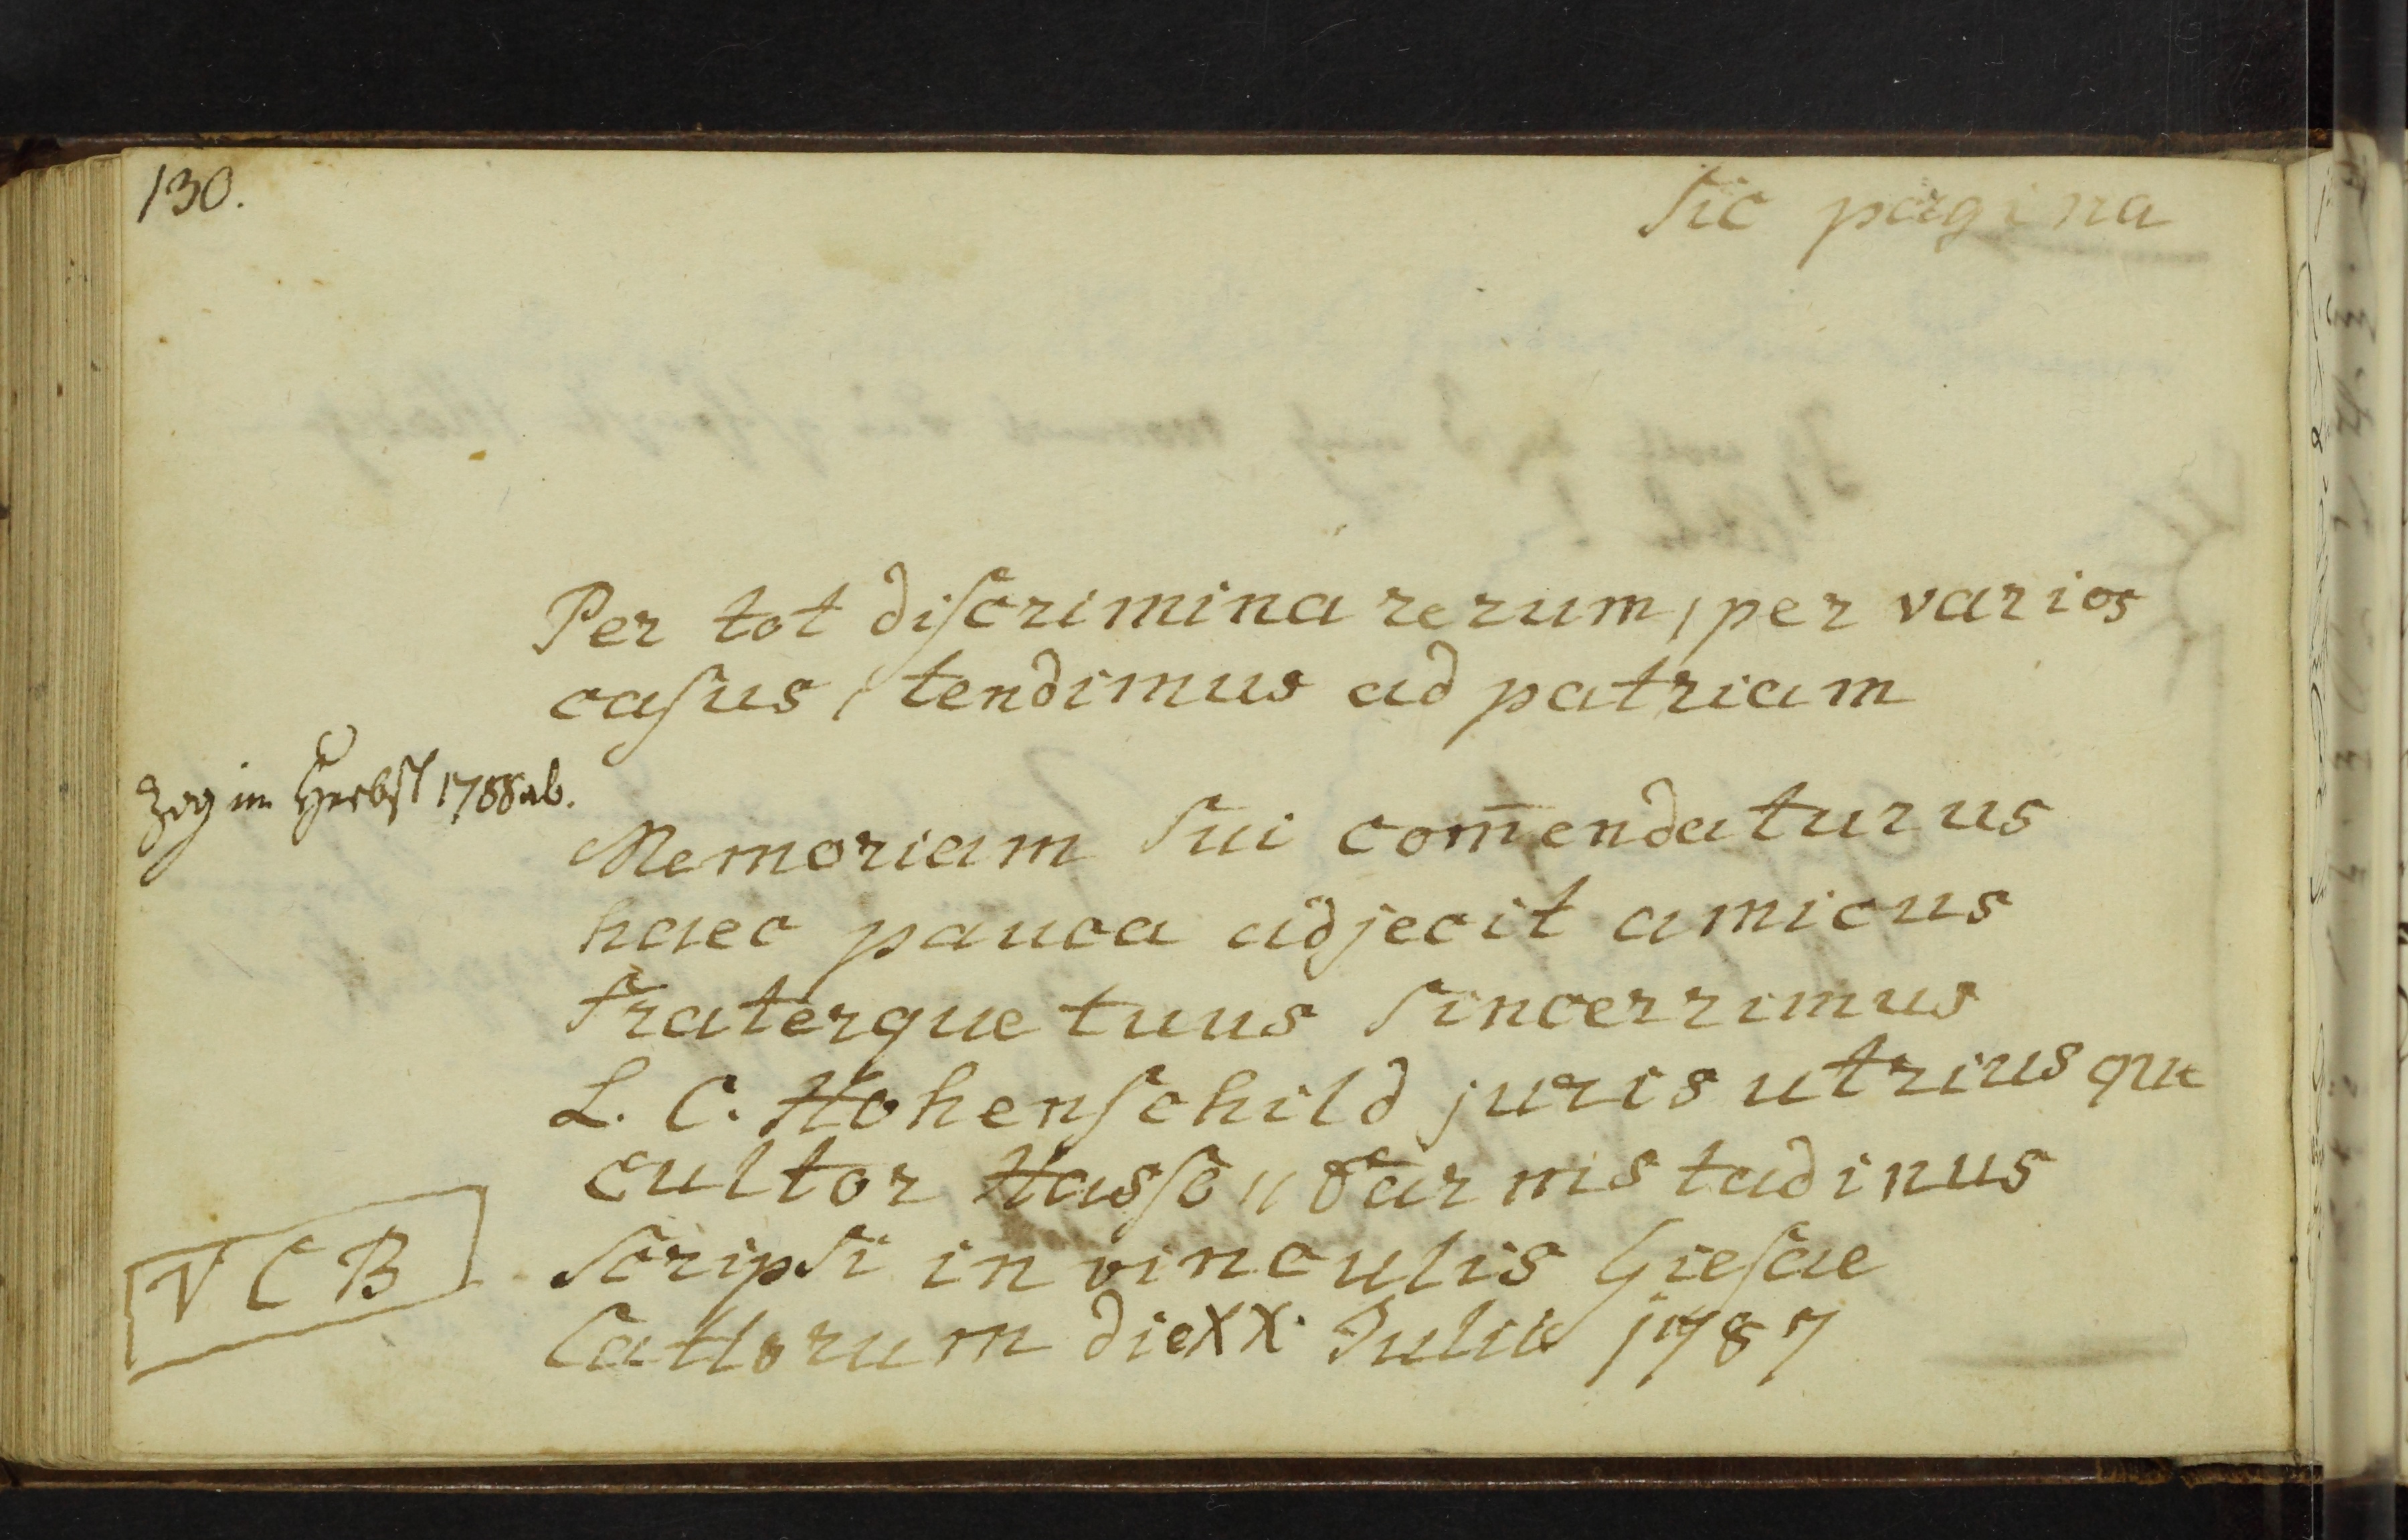 130.
Sic pagina
Per tot diſcrimina rerum, per varios
caſus, tendimus ad patriam
zog im Herbst 1788 ab.
Memoriam sui com̄endaturus
haec pauca adjecit amicus
fraterque tuus sincerrimus
L. C. Hohenſchild juris utriusque
cultor Hasso〃Darmstadinus
scripsi in vinculis Gieſae
Cattorum die XX. Julii 1787
V C B